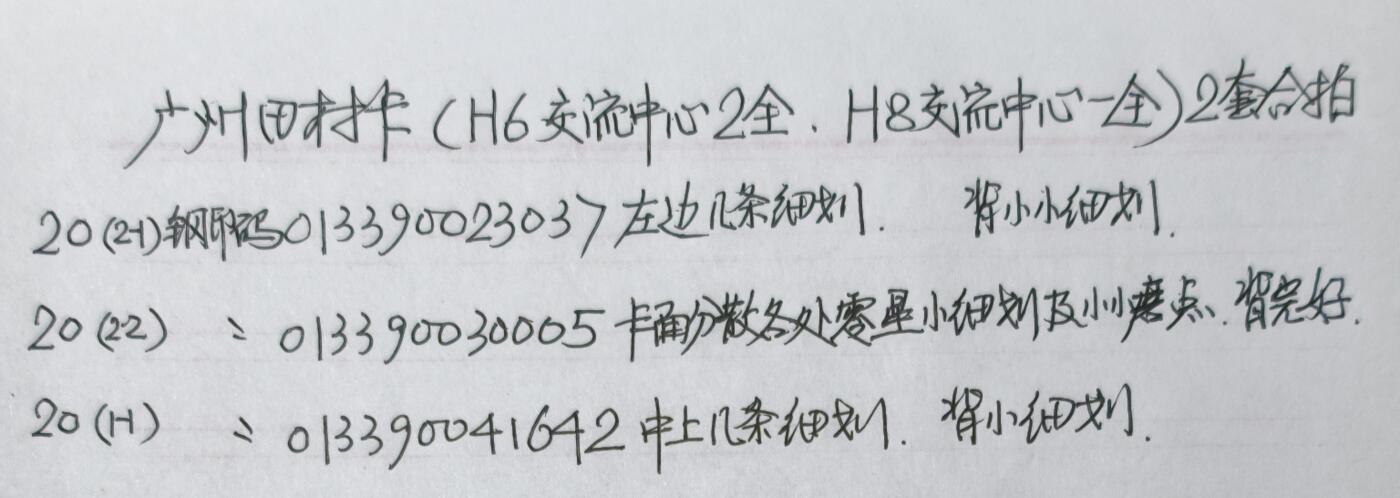 广州田村卡(H6交流中心2全.H8交流中心一全)2套合拍
20(2-1)钢印码013390023037左边几条细划. 背小小细划.
20(2-2) 〃 013390030005卡面分散各处零星小细划及小小磨点.背完好.
20(1-1) 〃 013390041642中上几条细划. 背小细划.